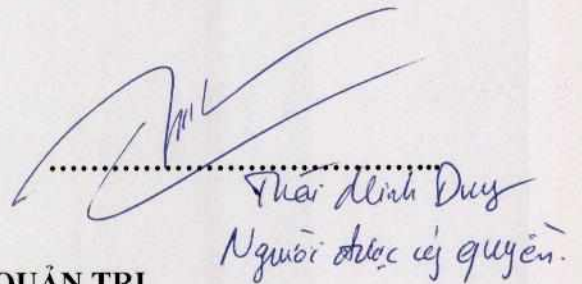 Thái Minh Duy
Người được ủy quyền.
QUẢN TRỊ